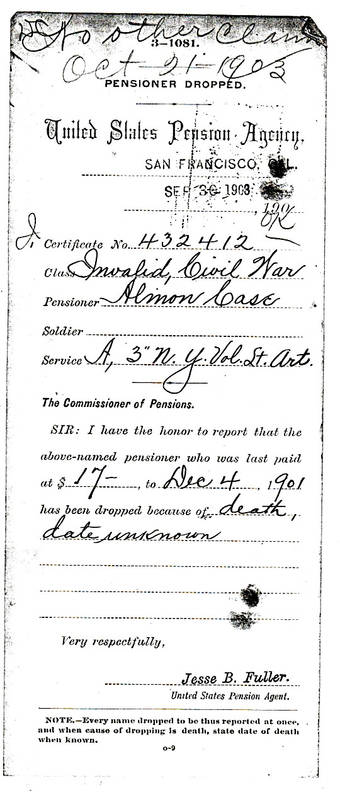 No other claim
3-1081.
Oct-21-1903
PENSIONER DROPPED.
United States Pension Agency,
SAN FRANCISCO, CAL.
SEP 30 1903
, 190
OK
I. Certificate No. 432412
Class Invalid, Civil War
Pensioner Almon Case
Soldier
Service A, 3" N. Y. Vol. Lt. Art.
The Commissioner of Pensions.
SIR: I have the honor to report that the
above-named pensioner who was last paid
at $ 17-, to Dec 4, 1901
has been dropped because of death,
date unknown
Very respectfully,
Jesse B. Fuller.
United States Pension Agent.
NOTE.—Every name dropped to be thus reported at once,
and when cause of dropping is death, state date of death
when known.
o-9